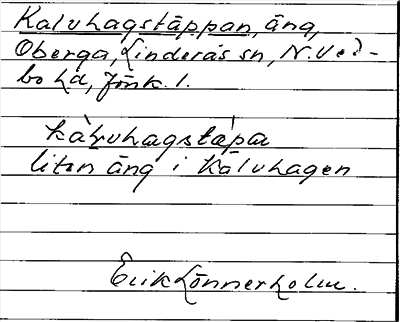 Kalvhagstäppan, äng,
Oberga, Linderås sn, N. Ved-
bo hd, Jönk. l.
kàɭvhagstæ̀pa
liten äng i Kalvhagen
Erik Lönnerholm.